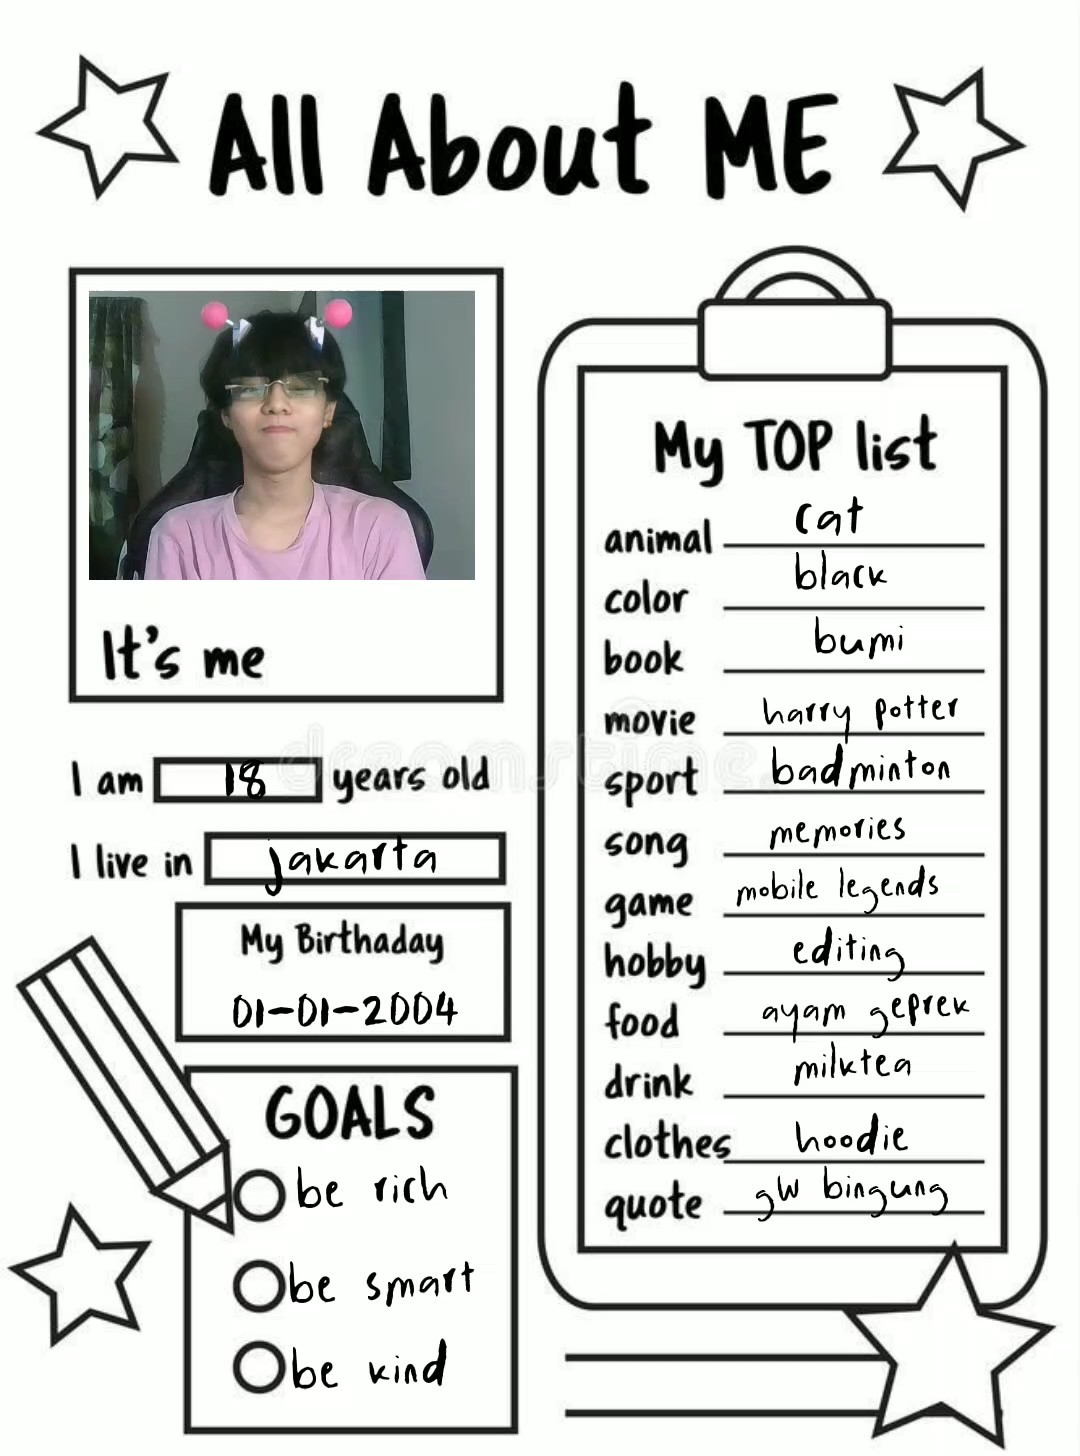 All About ME
It's me
I am 18 years old
I live in jakarta
My Birthaday
01-01-2004
GOALS
be rich
be smart
be kind
My TOP list
animal cat
color black
book bumi
movie harry potter
sport badminton
song memories
game mobile legends
hobby editing
food ayam geprek
drink milktea
clothes hoodie
quote gw bingung
dreamstime